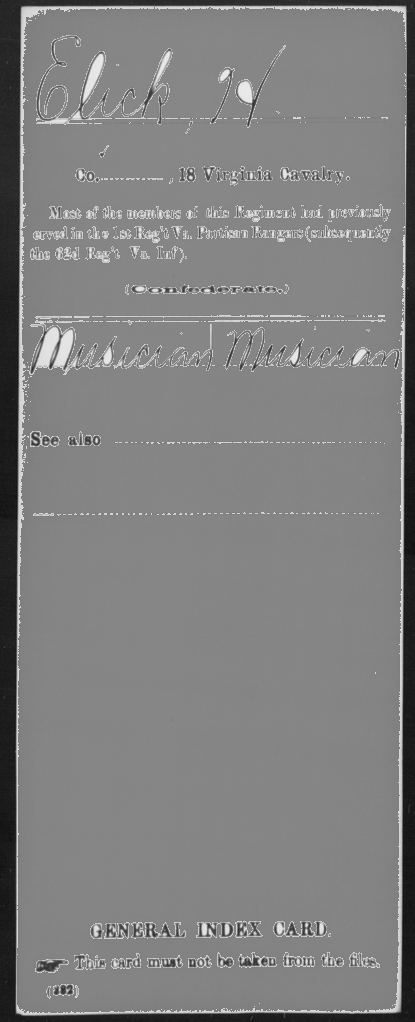 Elick, H
Co. , 18 Virginia Cavalry.
Most of the members of this Regiment had previously
served in the 1st Reg't Va. Partisan Rangers (subsequently
the 62d Reg't Va. Inf').
(Confederate.)
Musician Musician
See also
GENERAL INDEX CARD.
This card must not be taken from the files.